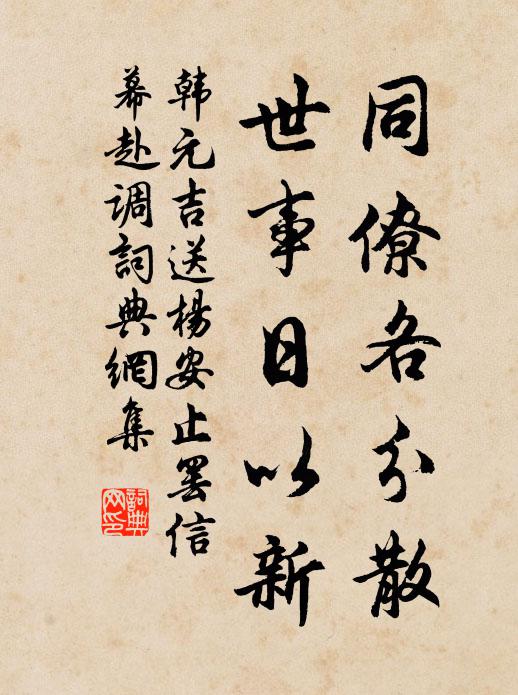 同僚各分散
世事日以新
韩元吉送楊安止罢信
幕赴調詞典網集
詞典網印